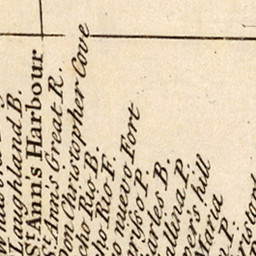 Laughland B.
St Ann's Harbour
St Ann's Great R.
Don Christopher Cove
cho Rio B.
ho Rio F.
o nuevo Fort
arißo P.
arles B.
allina P.
ver's hill
Maria
P.